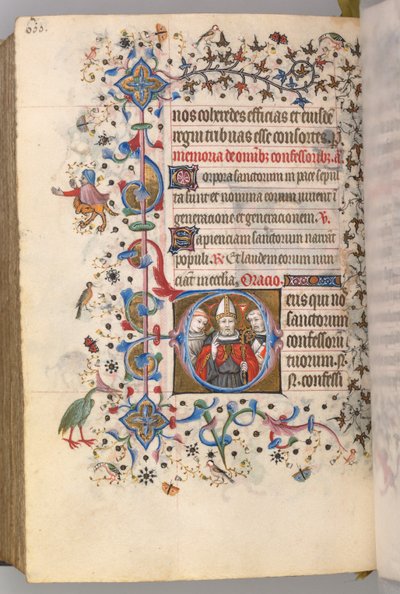 nos coheredes efficias et eiusdē
regni tribuas esse consortes. p
memoria de omībz confessoribz. a
Corpora sanctorum in pace sepul
ta sunt et nomina eorum vivent i
generatione et generationem. V
Sapienciam sanctorum narrēt
populi. R Et laudem eorum nun
ciāt in ecclīa. Oracio.
Deus qui no
sanctorum
confessorū
tuorum. N.
N. confessi